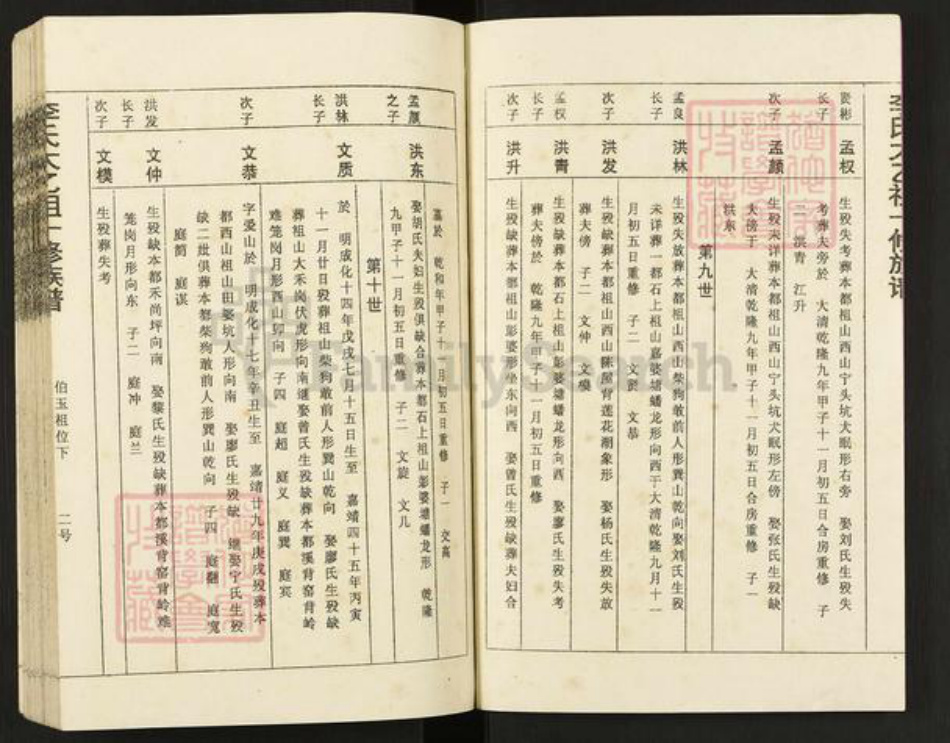 李氏太乙祖十修族谱
贤彬
长子
孟权
生殁失考葬本都祖山西山宁头坑犬眠形右旁 娶刘氏生殁失
考葬夫旁於 大清乾隆九年甲子十一月初五日合房重修 子
二 洪青 江升
次子
孟颜
生殁未详葬本都祖山西山宁头坑犬眠形左傍 娶张氏生殁缺
夫傍于 大清乾隆九年甲子十一月初五日合房重修 子一
洪东
第九世
孟良
长子
洪林
生殁失放葬本都祖山西山柴狗敢前人形巽山乾向娶刘氏生殁
未详葬一都石上祖山嘉婆墥蟠龙形向西于大清乾隆九月十一
月初五日重修 子二 文质 文恭
次子
洪发
生殁缺葬本都祖山西山陈屋背莲花潮象形 娶杨氏生殁失放
葬夫傍 子二 文仲 文模
孟权
长子
洪青
生殁缺葬本都石上祖山彭婆墥蟠龙形向西 娶廖氏生殁失考
葬夫傍於 乾隆九年甲子十一月初五日重修
次子
洪升
生殁缺葬本都祖山彭婆形坐东向西 娶曾氏生殁缺葬夫妇合
墓於 乾和年甲子十一月初五日重修 子一 文高
孟颜
之子
洪东
娶胡氏夫妇生殁俱缺合葬本都石上祖山彭婆墥蟠龙形 乾隆
九甲子十一月初五日重修 子二 文旋 文儿
第十世
洪林
长子
文质
於 明成化十四年戊戌七月十五日生至 嘉靖四十五年丙寅
十一月廿日殁葬祖山柴狗敢前人形巽山乾向 娶廖氏生殁缺
葬祖山大禾岗伏虎形向南继娶曾氏生殁缺葬本都溪背窑背岭
难笼岗月形酉山卯向 子四 庭超 庭义 庭巽 庭宾
次子
文恭
字爱山於 明成化十七年辛丑生至 嘉靖廿九年庚戌殁葬本
都西山祖山田婆坑人形向南 娶廖氏生殁缺 继娶宁氏生殁
缺二妣俱葬本都柴狗敢前人形巽山乾向 子四 庭翻 庭宽
庭简 庭谋
洪发
长子
文仲
生殁缺本都禾尚坪向南 娶黎氏生殁缺葬本都溪背窑背岭难
笼岗月形向东 子二 庭冲 庭兰
次子
文模
生殁葬失考
李氏太乙祖十修族谱
伯玉祖位下
二号
FamilySearch